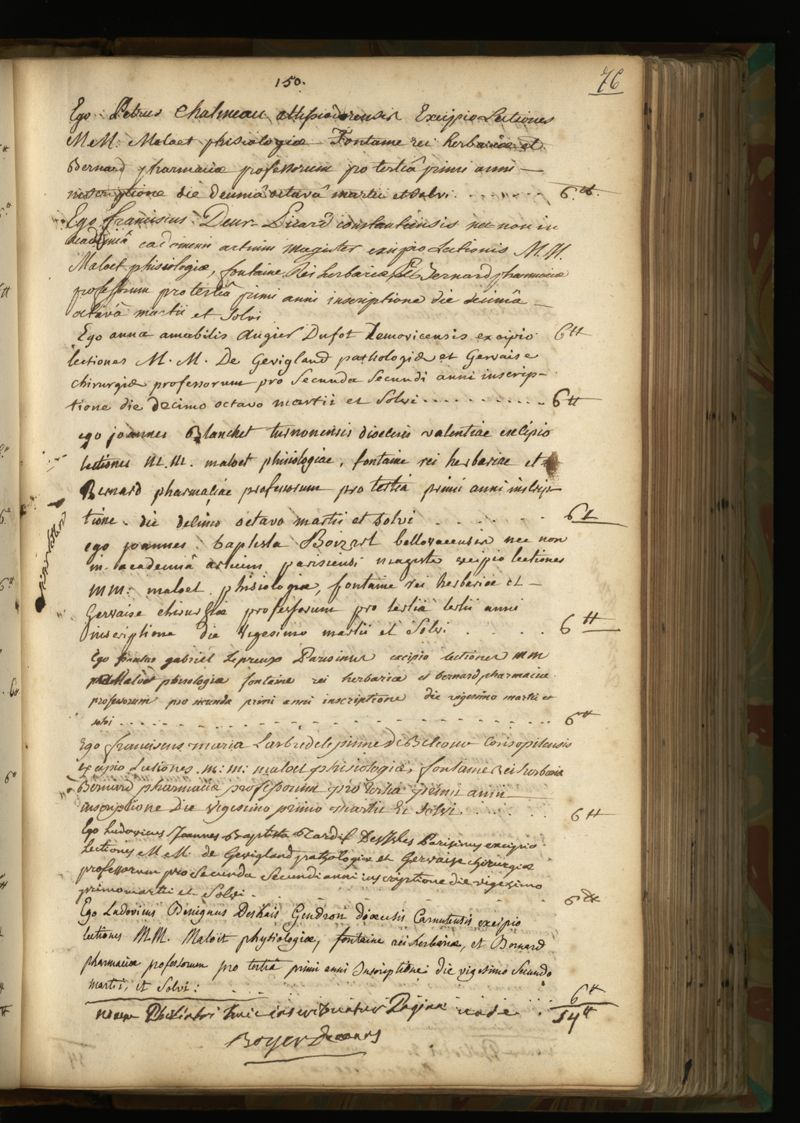 150.
76
Ego Petrus Chalmeau attissiodorensis Excipio Lectiones
M.M. Maloet phisiologiæ Fontaine rei herbariæ et
Bernard pharmaciæ professorum pro tertiâ primi anni —
inscriptione die decimâ octavâ martii et solvi . . . . . . . 6 ₶.
Ego franciscus Picard constantiensis nec non in
academiâ cadomensi artium magister excipio Lectiones M.M.
Maloet phisiologiæ, fontaine Rei herbariæ et Bernard pharmaciæ
professorum pro tertiâ primi anni inscriptione die decimâ —
octavâ martii et solvi
Ego anna amabilis augier Dufot Lemovicensis excipio 6 ₶
lectiones M. M. De Gevigland pathologiæ et Gervaise
chirurgiæ professorum pro Secunda Secundi anni inscrip-
tione die decimo octavo martii et Solvi . . . . . . . . . . 6 ₶
ego joannes Blanchet turnonensis diocesis valentiae excipio
lectiones M.M. maloet phisiologiae, fontaine rei herbariae et
Bernard pharmaciae professorum pro tertia primi anni inscrip
tione die decimo octavo martii et solvi . . . . . . 6 ₶
ego joannes baptista Boizot bellovacensis nec non
in academiâ artium parisiensi magister excipio lectiones
MM: maloet phisiologiæ, fontaine rei herbariæ et —
Gervaise chirurgiæ professorum pro tertia tertii anni
inscriptione die vigesimo martii et Solvi . . . . . 6 ₶
Ego gabriel Lepreux Parisinus excipio lectiones MM
Maloet phisiologiæ fontaine rei herbariæ et bernard pharmaciæ
professorum pro secunda primi anni inscriptione die vigesimo martii et
solvi . . . . . . . . . . . . . . . . 6 ₶
Ego franciscus maria Corisopitensis
excipio Lectiones m: m: maloet phisiologiæ, fontaine Rei herbariæ
Bernard pharmaciæ professorum pro tertia primi anni
inscriptione Die vigesimo primo martii Et Solvi . . . . . 6 ₶
Ego Ludovicus Joannes Baptista Tardif Parisinus excipio
Lectiones M.M. de Gevigland pathologiæ et Gervaise chirurgiæ
professorum pro Secunda Secundi anni inscriptione die vigesimo
primo martii et Solvi . . . . . . 6 ₶
Ego Ludovicus Benignus Deshais Gendron diocesis Carnutensis excipio
lectiones M.M. Maloet physiologiæ, fontaine rei herbariæ, et Bernard
pharmaciæ professorum pro tertiâ primi anni Inscriptione die vigesimo Secundo
martii, et Solvi : . . . . . . . 6 ₶
novem Philiatri huic inscribuntur Paginæ unde . 54 ₶
Boyer Decanus